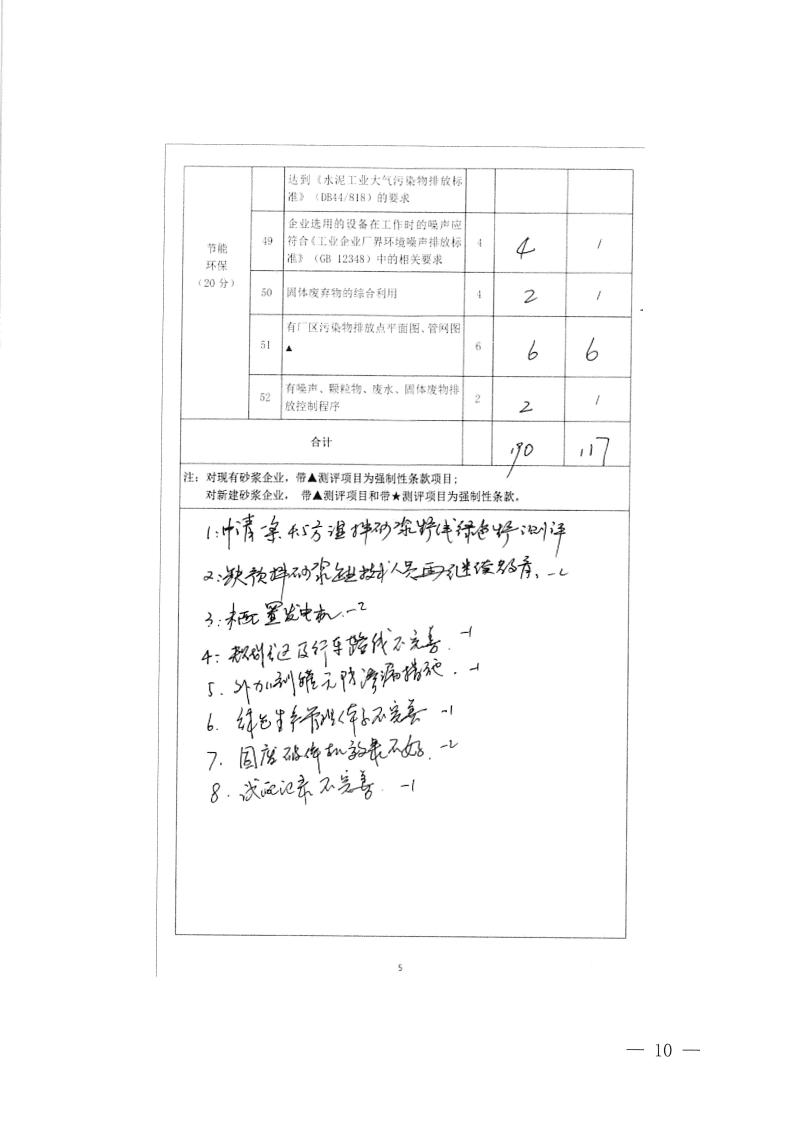 达到《水泥工业大气污染物排放标
准》（DB44/818）的要求
节能
环保
（20 分）
49
企业选用的设备在工作时的噪声应
符合《工业企业厂界环境噪声排放标
准》（GB 12348）中的相关要求
4
4
/
50
固体废弃物的综合利用
4
2
/
51
有厂区污染物排放点平面图、管网图
▲
6
6
6
52
有噪声、颗粒物、废水、固体废物排
放控制程序
2
2
/
合计
190
117
注：对现有砂浆企业，带▲测评项目为强制性条款项目；
对新建砂浆企业， 带▲测评项目和带★测评项目为强制性条款。
1：申请一条4.5方湿拌砂浆 线绿色 测评
2：缺预拌砂浆 技术人员再继续教育. -2
3：未配置发电机. -2
4： 及行车路线不完善. -1
5. 外加剂罐无防渗漏措施. -1
6. 绿色生产管理体系不完善 -1
7. 固废破碎机效果不好. -2
8. 试配记录不完善. -1
5
— 10 —